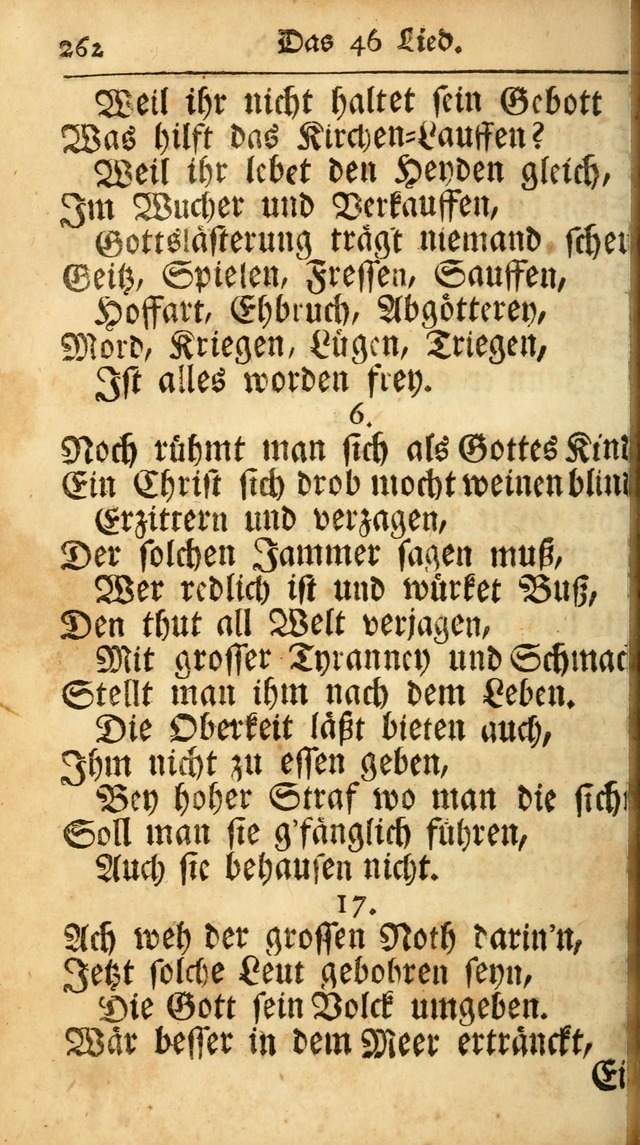 262 Das 46 Lied.
Weil ihr nicht haltet sein Gebott
Was hilft das Kirchen-Lauffen?
Weil ihr lebet den Heyden gleich,
Im Wucher und Verkauffen,
Gottslästerung trägt niemand schei
Geitz, Spielen, Fressen, Sauffen,
Hoffart, Ehbruch, Abgötterey,
Mord, Kriegen, Lügen, Triegen,
Ist alles worden frey.
6.
Noch rühmt man sich als Gottes Kind
Ein Christ sich drob mocht weinen blind
Erzittern und verzagen,
Der solchen Jammer sagen muß,
Wer redlich ist und würket Buß,
Den thut all Welt verjagen,
Mit grosser Tyranney und Schmac
Stellt man ihm nach dem Leben.
Die Oberkeit läßt bieten auch,
Ihm nicht zu essen geben,
Bey hoher Straf wo man die sich
Soll man sie g'fänglich führen,
Auch sie behausen nicht.
17.
Ach weh der grossen Noth darin'n,
Jetzt solche Leut gebohren seyn,
Die Gott sein Volck umgeben.
Wär besser in dem Meer erträнckt,
Ei